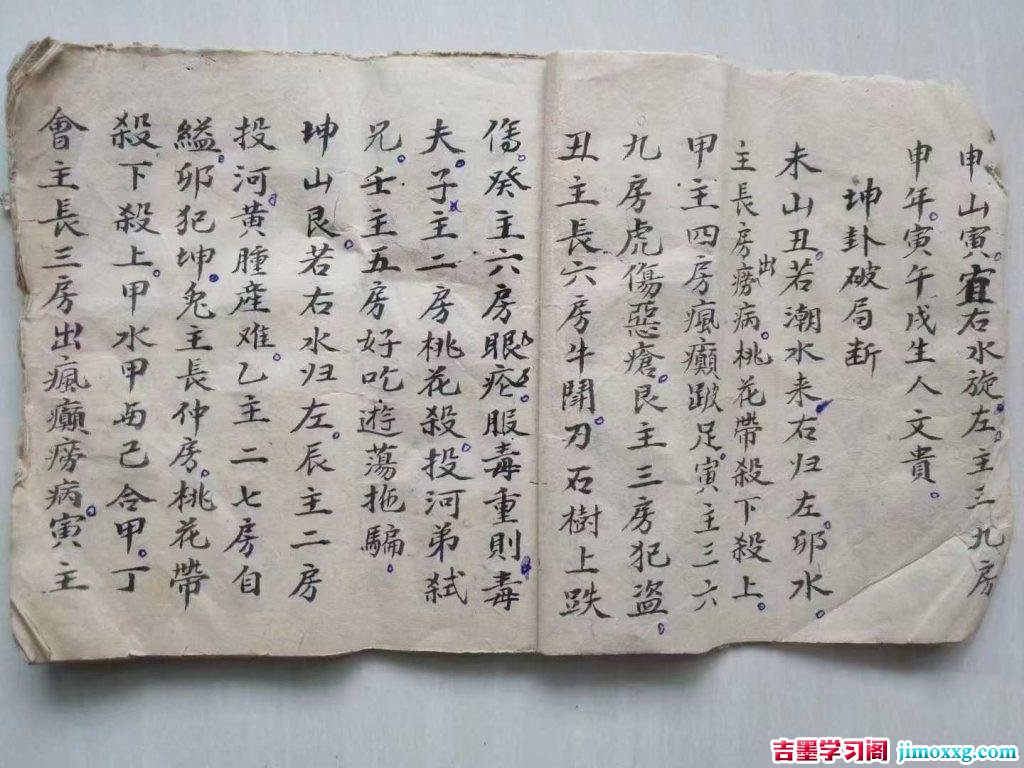 申山寅。宜右水旋左。主三九房
申年。寅午戌生人文貴。
坤卦破局断
未山丑。若潮水来。右归左。卯水。
主長房出癆病。桃花帶殺下殺上。
甲主四房瘋癲跛足。寅主三六
九房虎傷惡瘡。艮主三房犯盗。
丑主長六房牛鬪。刀石樹上跌
傷。癸主六房眼疾。服毒重則毒
夫。子主二房桃花殺。投河弟弑
兄。壬主五房好吃遊蕩拖騙。
坤山艮。若右水归左。辰主二房
投河。黄腫産难。乙主二七房自
縊。卯犯坤。兔主長仲房。桃花帶
殺下殺上。甲水甲与己合甲。丁
會主長三房出瘋癲癆病。寅主
吉墨学习阁 jimoxxg.com